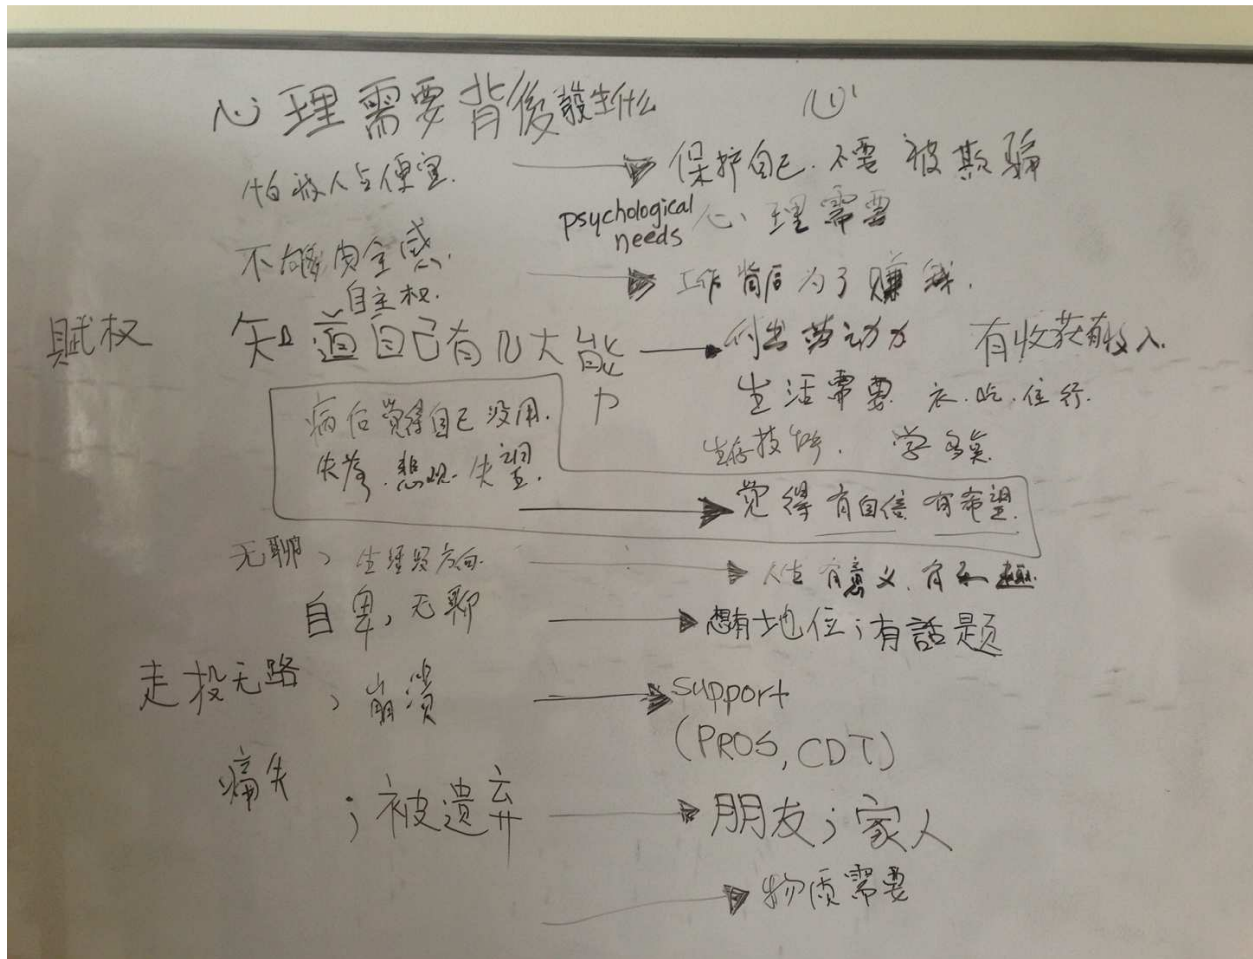 心理需要背後發生什么 心
怕被人占便宜. → 保护自己.不要被欺骗
psychological needs 心理需要
不够安全感. → 工作背后为了赚钱.
自主权.
賦权 知道自己有几大能力 → 付出劳动力 有收获有收入.
生活需要 衣.吃.住行.
病后觉得自己没用. 生存技能.
失落.悲观.失望. → 觉得有自信 有希望.
无聊, → 人生有意义.有
自卑,无聊 → 想有地位;有話题
走投无路,崩溃 → support
(PROS, CDT)
痛失;被遗弃 → 朋友;家人
→ 物质需要